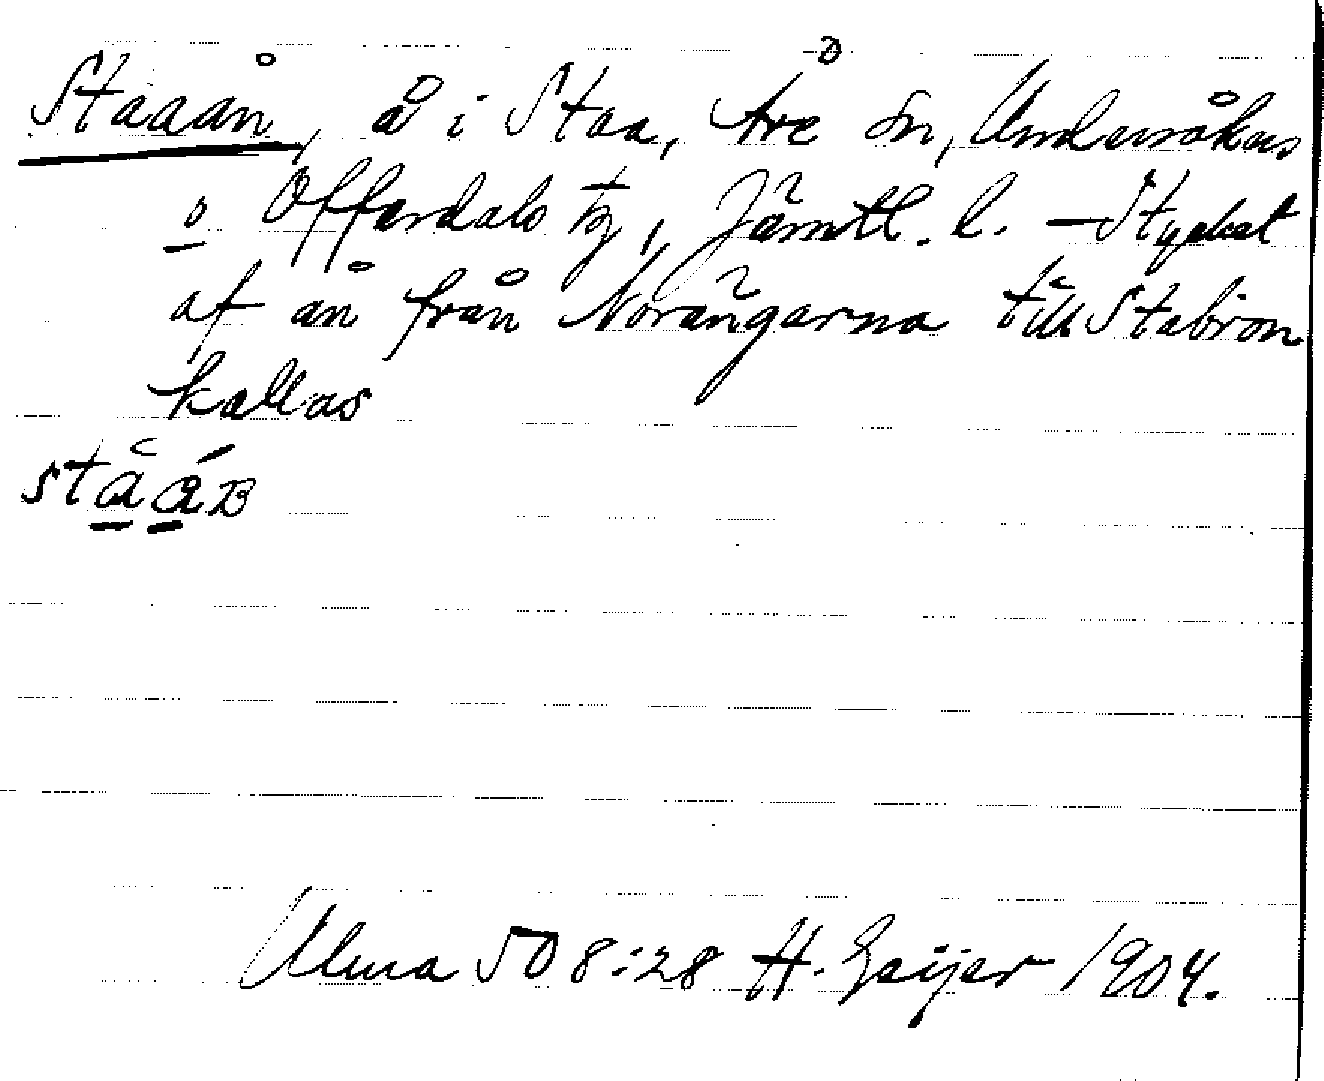 Staaån, å i Staa, Åre sn, Undersåkers
o Offerdals tg, Jämtl. l. – Stycket
af ån från Norängarna till Stabron
kallas
Ulma 508:28 H. Geijer 1904.